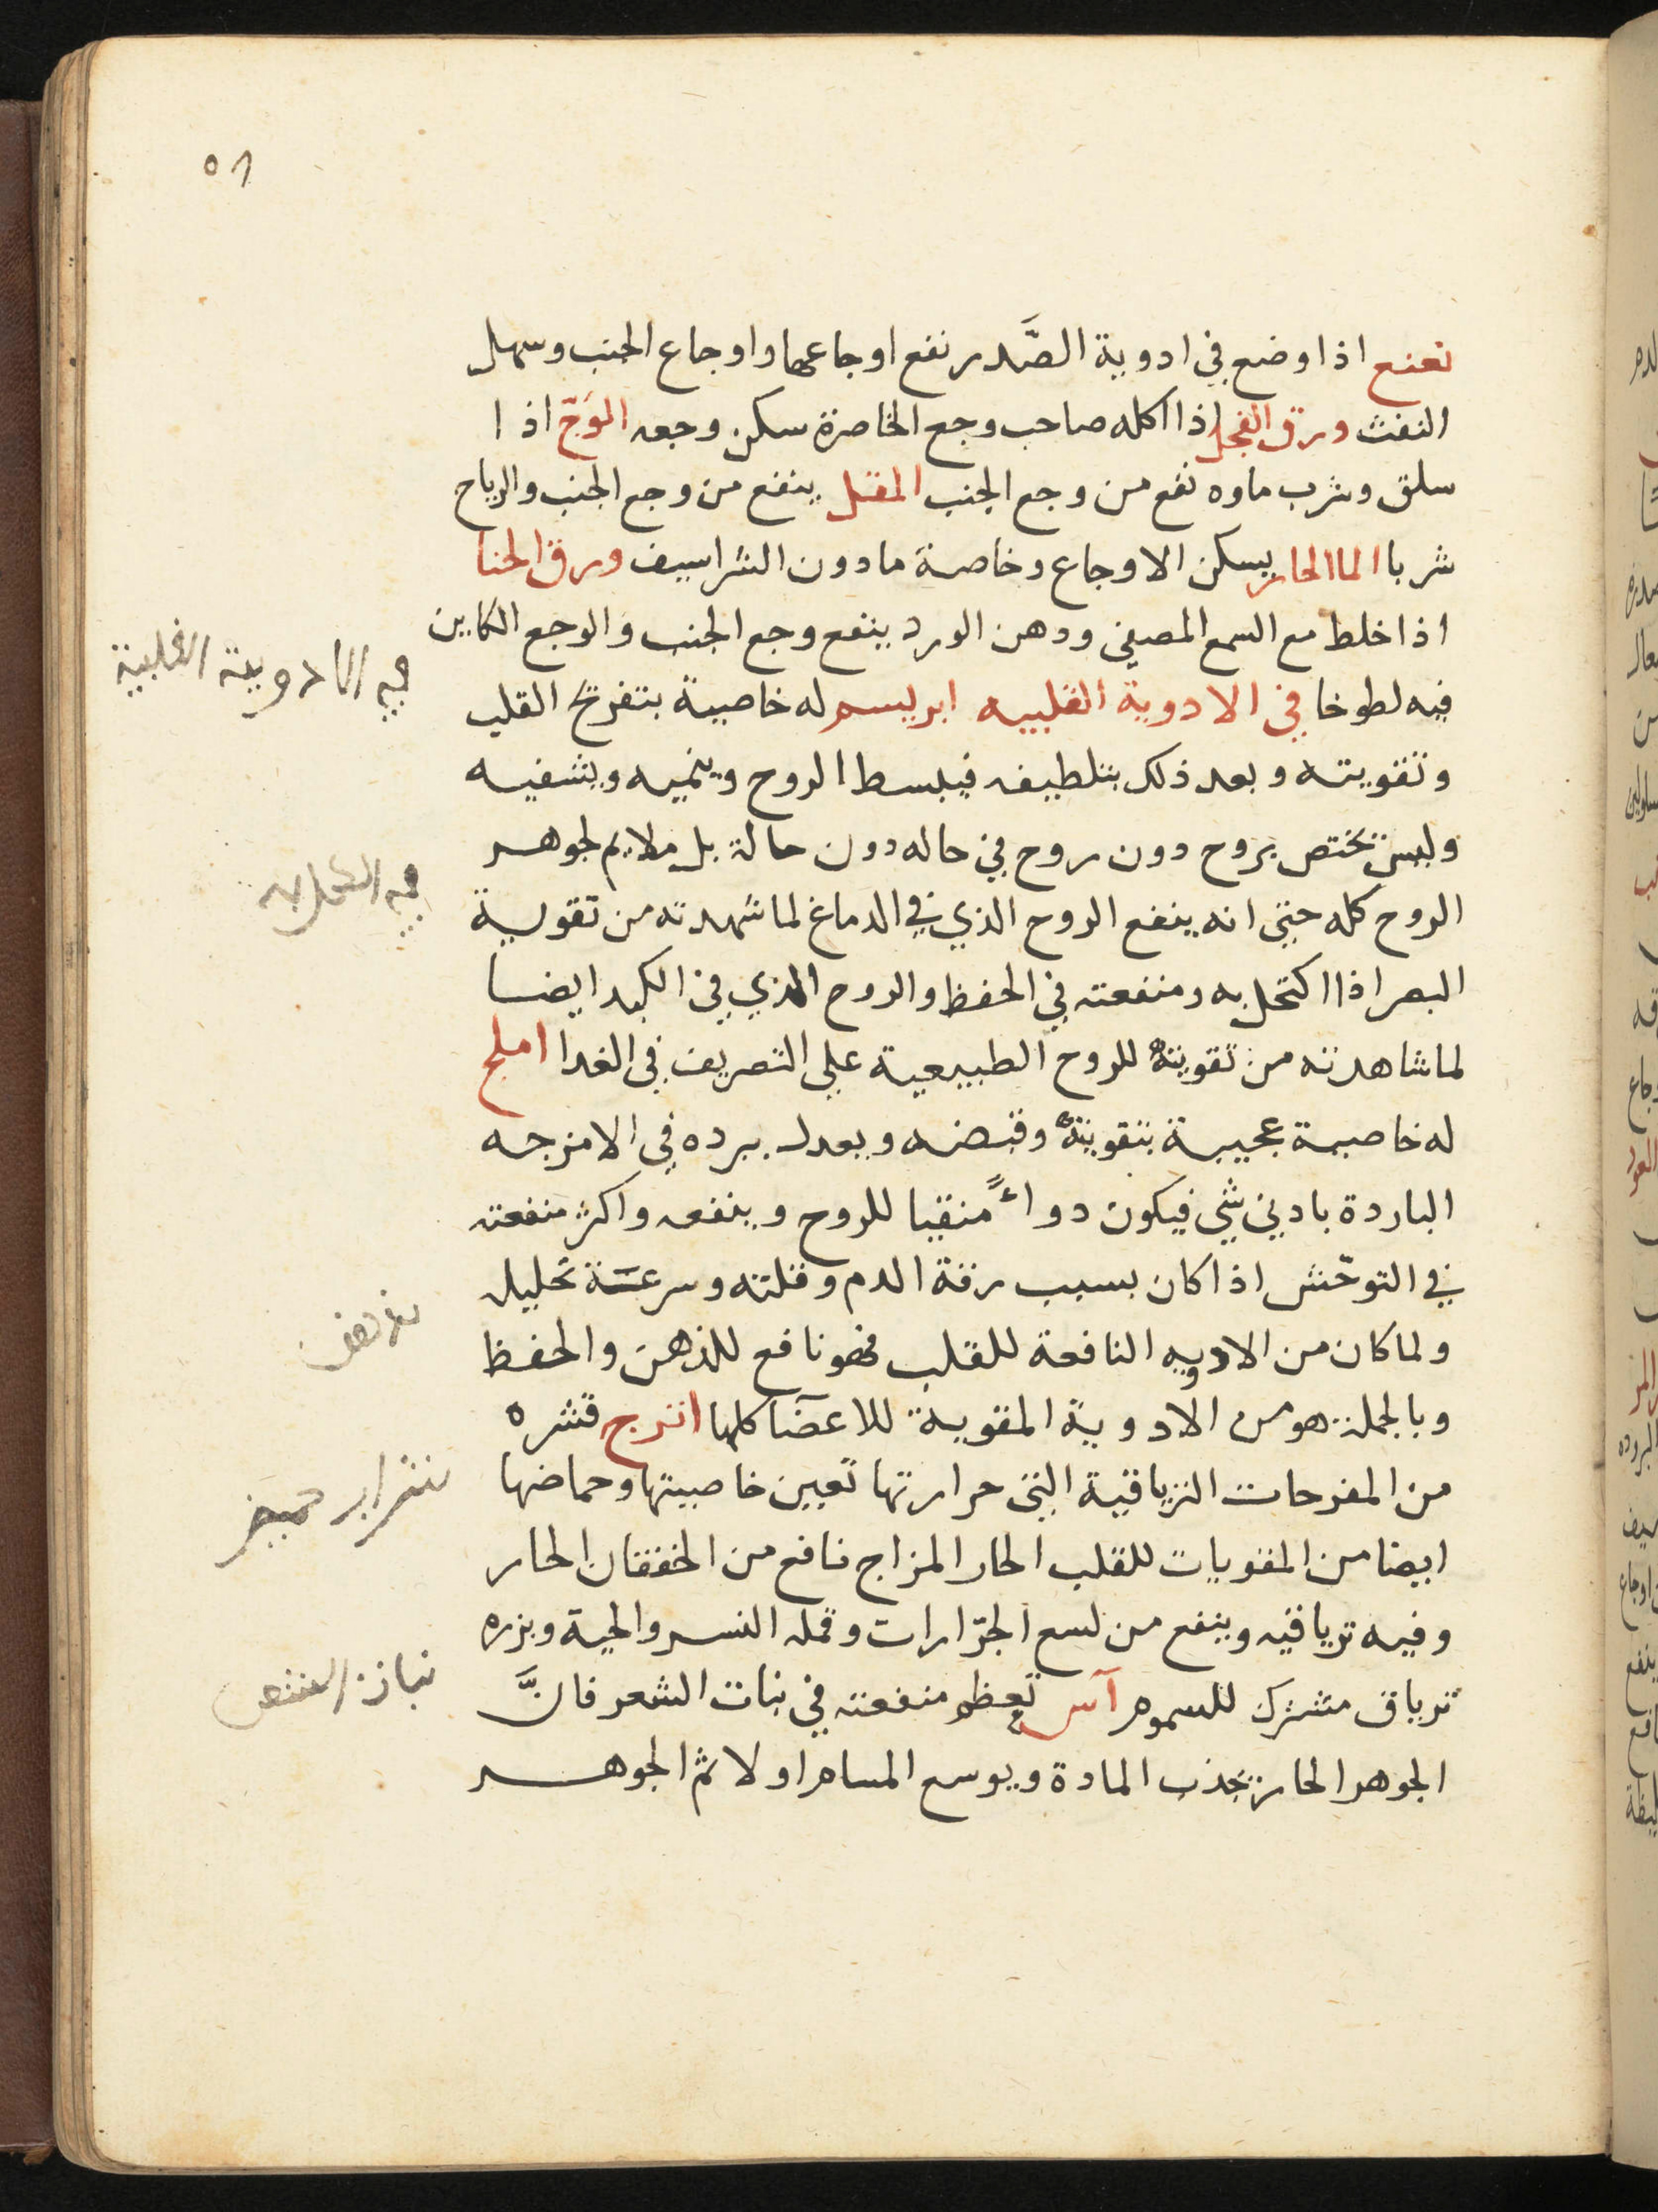 نعنع اذا وضع في ادوية الصَّدر نفع اوجاعها واوجاع الجنب وسهل
النفث ورق الفجل اذا اكله صاحب وجع الخاصرة سكن وجعه الوَجّ اذا
سلق وشرب ماوه نفع من وجع الجنب المقل ينفع من وجع الجنب والرياح
شربا الما الحار يسكن الاوجاع وخاصة ما دون الشراسيف ورق الحنا
اذا خلط مع الشمع المصفي ودهن الورد ينفع وجع الجنب والوجع الكاين
فيه لطوخا في الادوية القلبيه ابريسم له خاصية بتفريح القلب
وتقويته وبعد ذلك بتلطيفه فيبسط الروح وينميه ويشفيه
وليس تختص بروح دون روح في حاله دون حالة بل ملايم لجوهر
الروح كله حتى انه ينفع الروح الذي في الدماغ لما شهدته من تقوية
البصر اذا اكتحل به ومنفعته في الحفظ والروح الذي في الكبد ايضا
لما شاهدته من تقويته للروح الطبيعية علي التصريف في الغدا املج
له خاصية عجيبة بتقويته وقبضه ويعدل برده في الامزجه
الباردة بادني شي فيكون دواءً منقيا للروح وينفعه واكثر منفعته
في التوحّش اذا كان بسبب رقة الدم وقلته وسرعة تحليله
ولما كان من الادويه النافعة للقلب فهو نافع للذهن والحفظ
وبالجملة هو من الادوية المقوية للاعضآ كلها اترج قشره
من المفرحات الترياقية التي حرارتها تعين خاصيتها وحماضها
ايضا من المقويات للقلب الحار المزاج نافع من الخفقان الحار
وفيه ترياقيه وينفع من لسع الجرّارات وقمله النسر والحية وبزره
ترياق مشترك للسموم آس تعظم منفعته في نبات الشعر فانَّ
الجوهر الحار تجذب المادة ويوسع المسام اولا ثم الجوهر
في الادوية القلبية